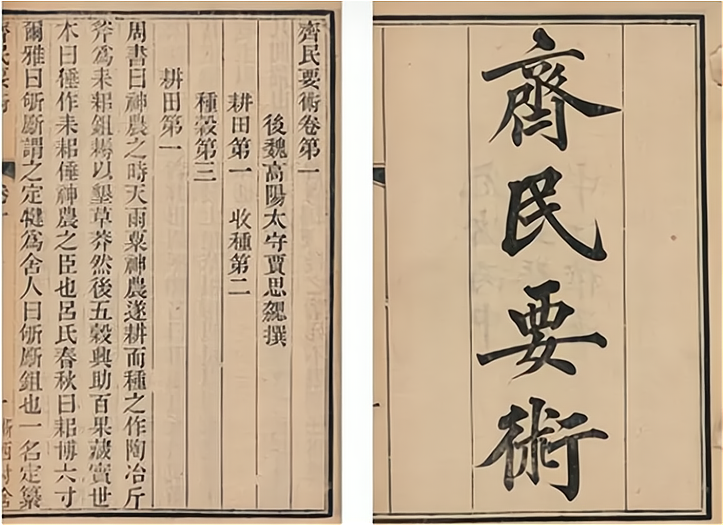 齊民要術
齊民要術卷第一
後魏高陽太守賈思勰撰
耕田第一 收種第二
種穀第三
耕田第一
周書曰神農之時天雨粟神農遂耕而種之作陶冶斤
斧爲耒耜鉏耨以墾草莽然後五穀興助百果藏實世
本曰倕作耒耜倕神農之臣也呂氏春秋曰耜博六寸
爾雅曰斪斸謂之定犍爲舍人曰斪斸鉏也一名定纂
齊民要術 卷一 一 浙西村舍